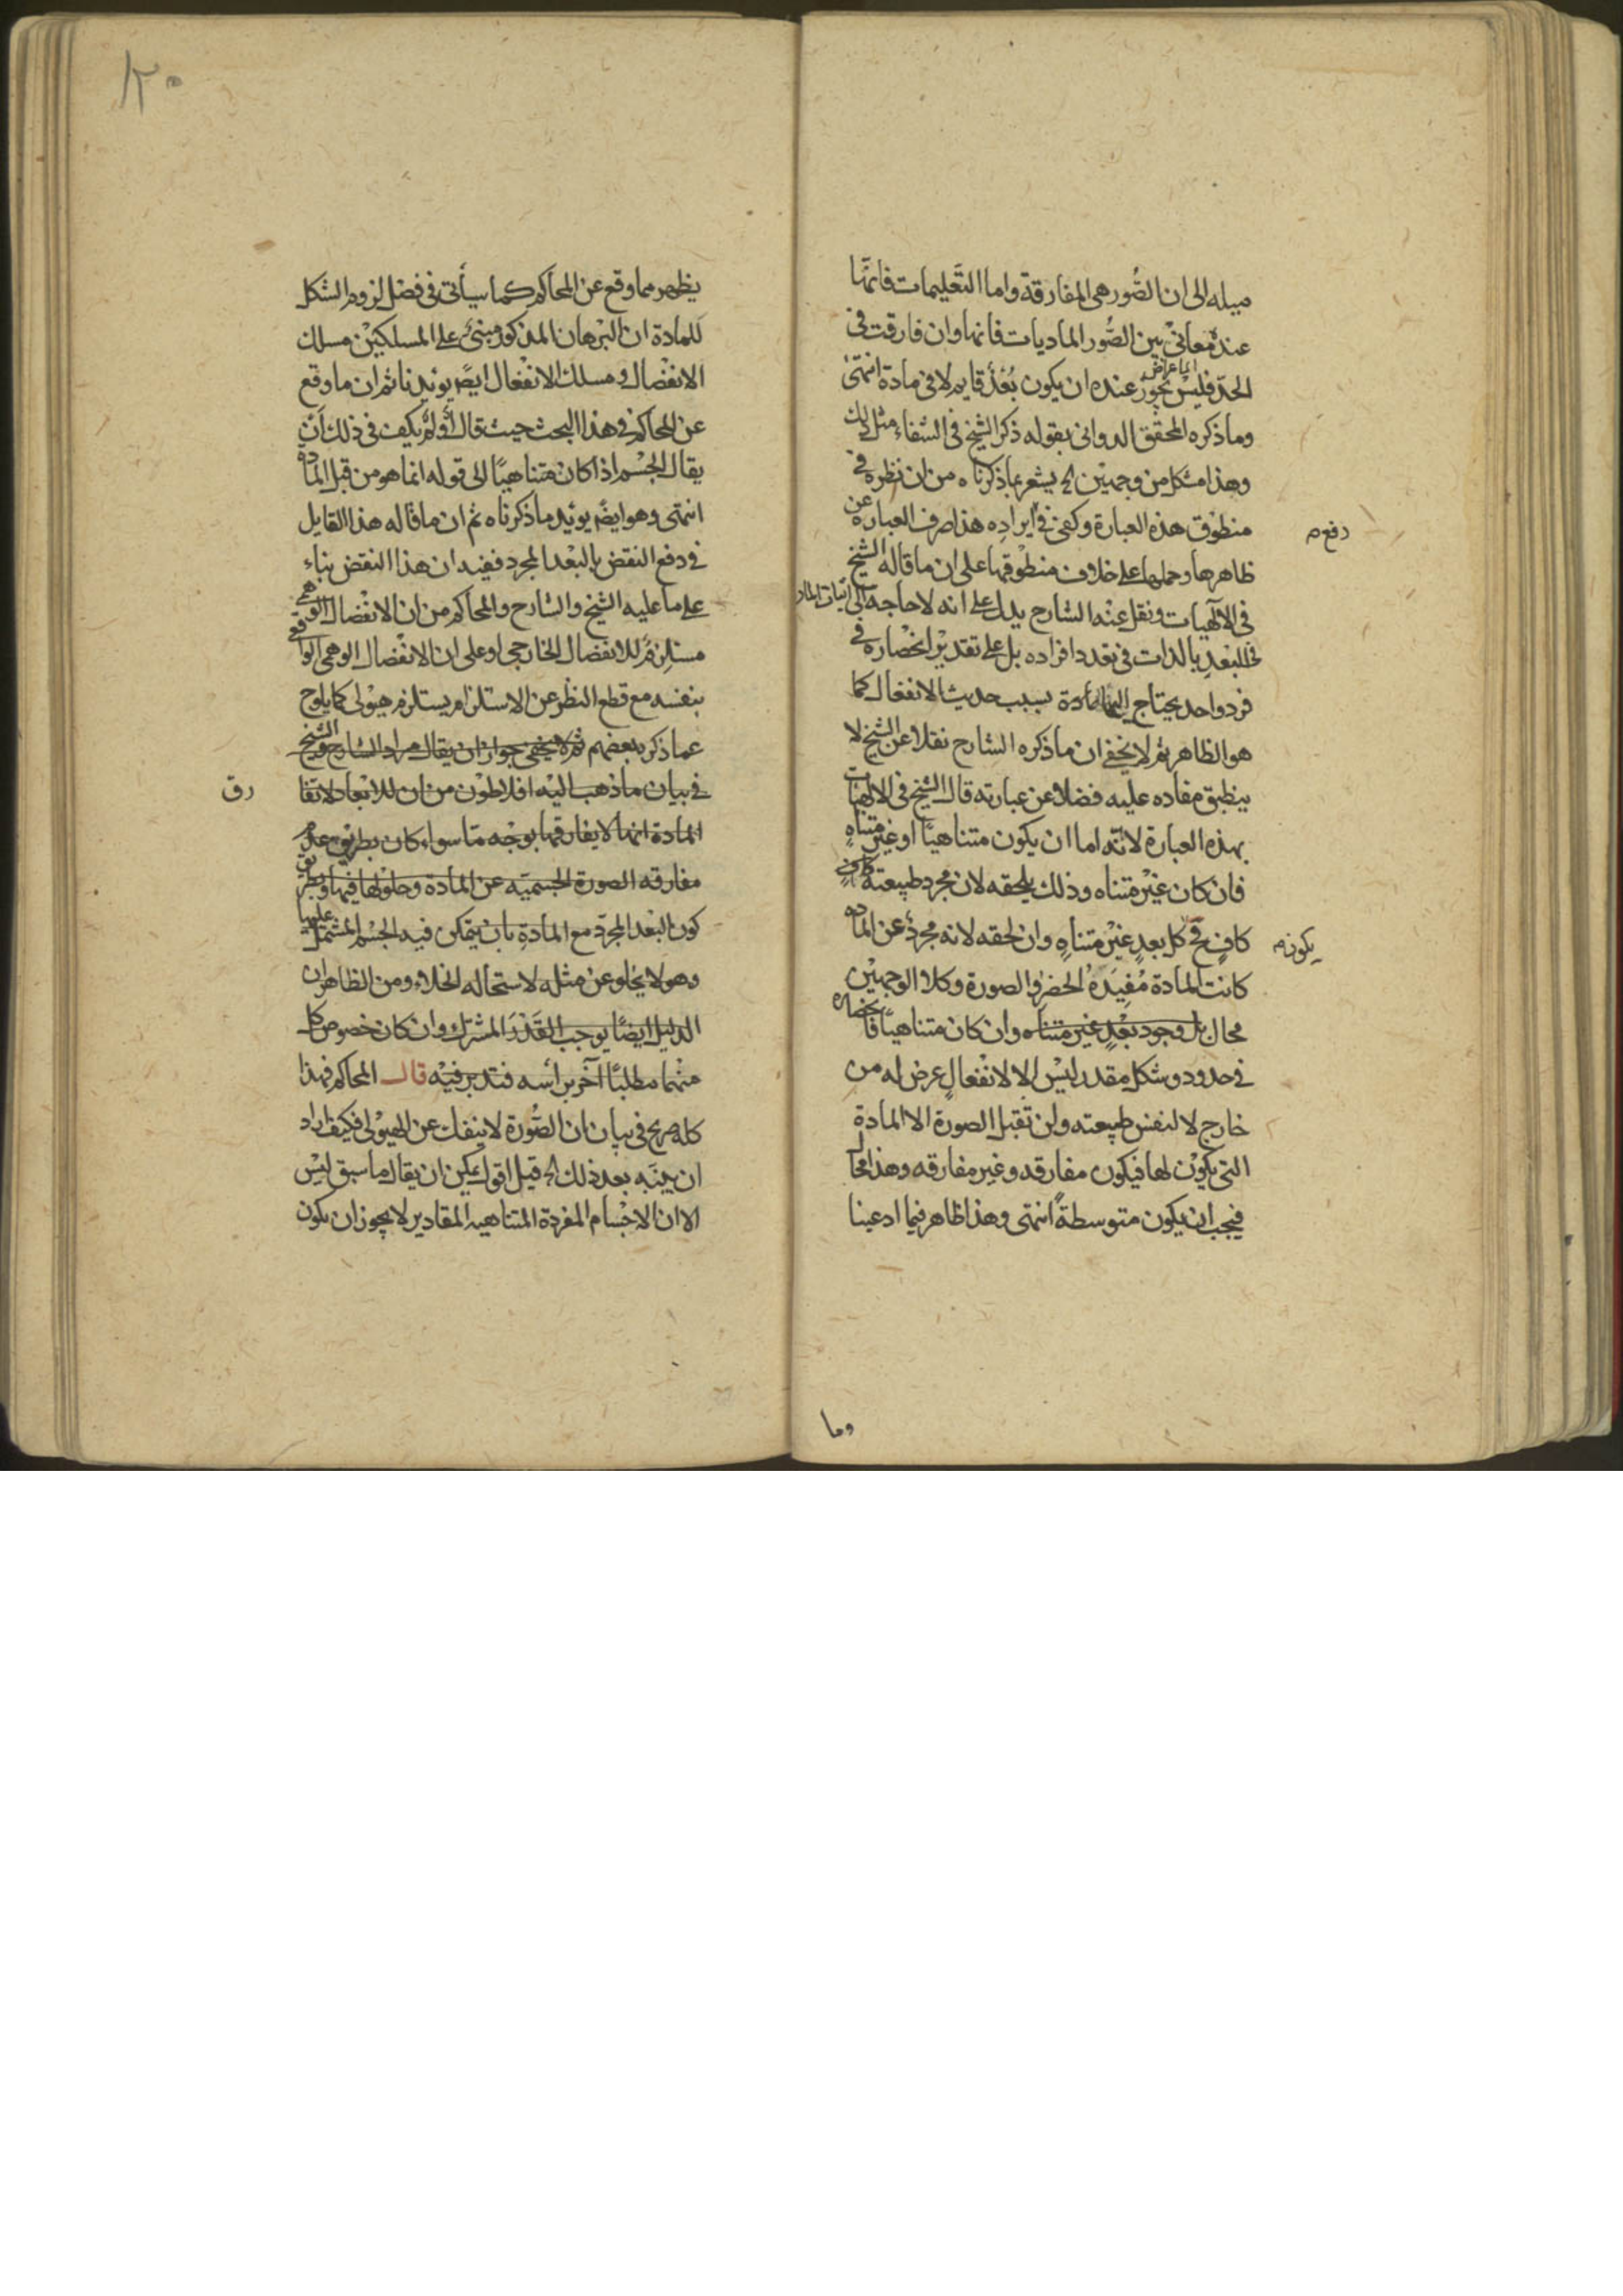 ميله الى ان الصُّور هى المفارقة واما التَّعليمات فانّها
عنده معانىْ بين الصُّور الماديات فانها وان فارقت فى
الحدّ فليسْ يجوز عنده ان يكون بُعْدٌ قايم لا فى مادة انتهىٰ
وما ذكره المحقق الدوانى بقوله ذكر الشيخ فى الشفاء مثل ذلك
وهذا مشكل من وجهيْن يشعر بما ذكرناه من ان نظره فى
منطوق هذه العبارة وكفى فى ايراده هذا صرف العبارة عن
دفع م
ظاهرها وحملها على خلاف منطوْقها على ان ما قاله الشيخ
فى الآلهيات ونقل عنْه الشارح يدل على انه لا حاجة الى اثبات
للبُعْدِ بالذات فى تعدد افراده بل على تقديْر انحْصاره فى
فرد واحد يحتاج الى المادة بسبب حديث الانفعال كما
هو الظاهر ثم لا يخفى ان ما ذكره الشارح نقلا عن الشيخ لا
ينطبق مفاده عليه فضلا عن عبارته قال الشيخ فى الالهيات
بهذه العبارة لانّه اما ان يكون متناهيًا او غيْر متناهٍ
فان كان غيْر متناه وذلك يلحقه لان مجرد طبيعته كافٍ
كافٍ فى كل بعدٍ غيْر متناهٍ وان لحقه لانه مجردٌ عن المادة
يكون م
كانت المادة مُفِيْدَةُ الحضر والصورة وكلا الوجهيْن
محال بل وجود بعْدٍ غير متناه وان كان متناهيًا فانحصاره
فى حدود وشكل مقدر ليْس الا لانفعالٍ عرض له من
خارج لا لنفس طبيعته ولن تقبل الصورة الا المادة
التى يكوْن لها فيكون مفارقه وغير مفارقه وهذا محال
فيجب ان يكون متوسطةً انتهى وهذا ظاهر فيما ادعينا
وما
١٢٠
يظهر مما وقع عن المحاكم كما سيأتى فى فصل لزوم الشكل
للمادة ان البرهان المذكور مبنىٌّ على المسلكيْن مسلك
الانفْصال ومسلك الانفْعال ايضًا يوئيدنا ثم ان ما وقع
عن المحاكم فى هذا البحث حيث قال أولم يكف فى ذلك أن
يقال الجسْم اذا كان متناهيًا الى قوله انما هو من قبل المادة
انتهى وهو ايضًا يوئيد ما ذكرناه ثم ان ما قاله هذا القايل
فى دفع النقض بالبعْد المجرد ففيه ان هذا النقض بناء
على ما عليه الشيخ والشارح والمحاكم من ان الانفْصال الوهمى
مستلزمٌ للانفصال الخارجى او على ان الانفْصال الوهمى الواقعى
بنفسه مع قطع النظر عن الاستلزام يستلزم هيوْلى كما يلوح
عما ذكر بعضهم ثم لا يخفى جواز ان يقال مراد الشارح والشيخ
فى بيان ما ذهب اليْه افلاطوْن من ان للابعاد لا تفا
رق
المادة انها لا يفارقها بوجْه ما سواء كان بطريق عدم
مفارقه الصورة الجسميّه عن المادة وحلوْلها فيها او بطريق
كون البعْد المجرّد مع المادةِ بان يتمكن فيه الجسْم المشتمل عليها
وهو لا يخلو عن مثله لاستحاله الخلاء ومن الظاهر ان
الدليل ايضًا يوجب القَدْرَ المشترك وان كان خصوص كل
منْهما مطلبًا آخر براْسه فتدبر فيْه قال المحاكم فهذا
كله صريح فى بيان ان الصُّورة لا ينفك عن الهيوْلى فكيف اراد
ان يبيّنه بعد ذلك قيل اقول يمكن ان يقال ما سبق ليْس
الا ان الاجْسام المفردة المتناهيه المقادير لا يجوز ان يكون